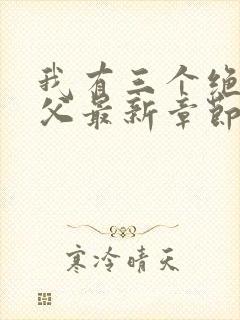 我有三个绝
父最新章节
寒冷晴天